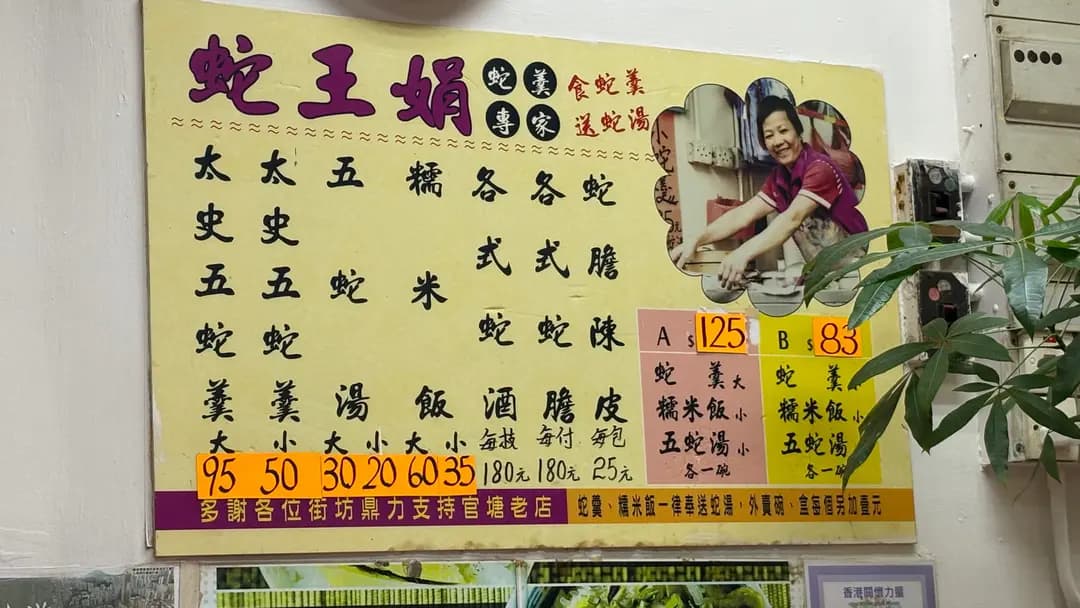 蛇王娟
蛇羹專家
食蛇羹
送蛇湯
太史五蛇羹 大 95
太史五蛇羹 小 50
五蛇湯 大 小 30 20
糯米飯 大 小 60 35
各式蛇酒 每枝 180元
各式蛇膽 每付 180元
蛇膽陳皮 每包 25元
A $125
蛇羹大
糯米飯小
五蛇湯小
各一碗
B $83
蛇羹小
糯米飯小
五蛇湯
各一碗
多謝各位街坊鼎力支持官塘老店
蛇羹、糯米飯一律奉送蛇湯，外賣碗、盒每個另加壹元
香港關懷力量